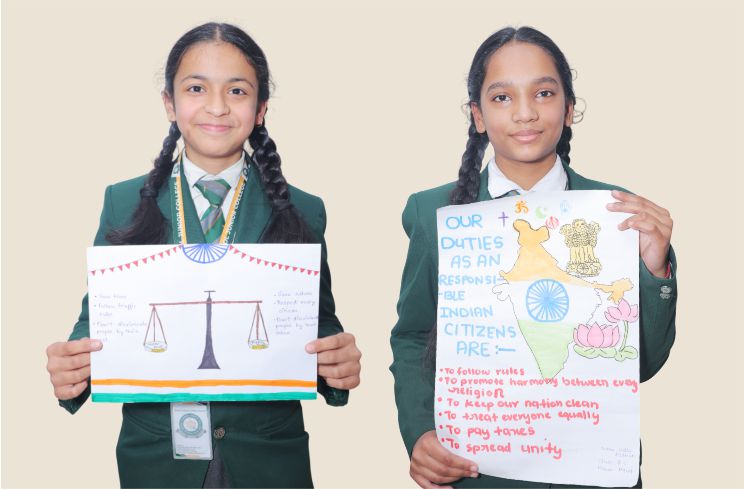 JUNIOR COLLEGE
• Save trees
• Follow traffic
rules
• Don't discriminate
people by their
• Save nature
• Respect every
citizen
• Don't discriminate
people by their
OUR
DUTIES
AS AN
RESPONSI-
-BLE
INDIAN
CITIZENS
ARE:-
• To follow rules
• To promote harmony between every
religion
• To keep our nation clean
• To treat everyone equally
• To pay taxes
• To spread unity